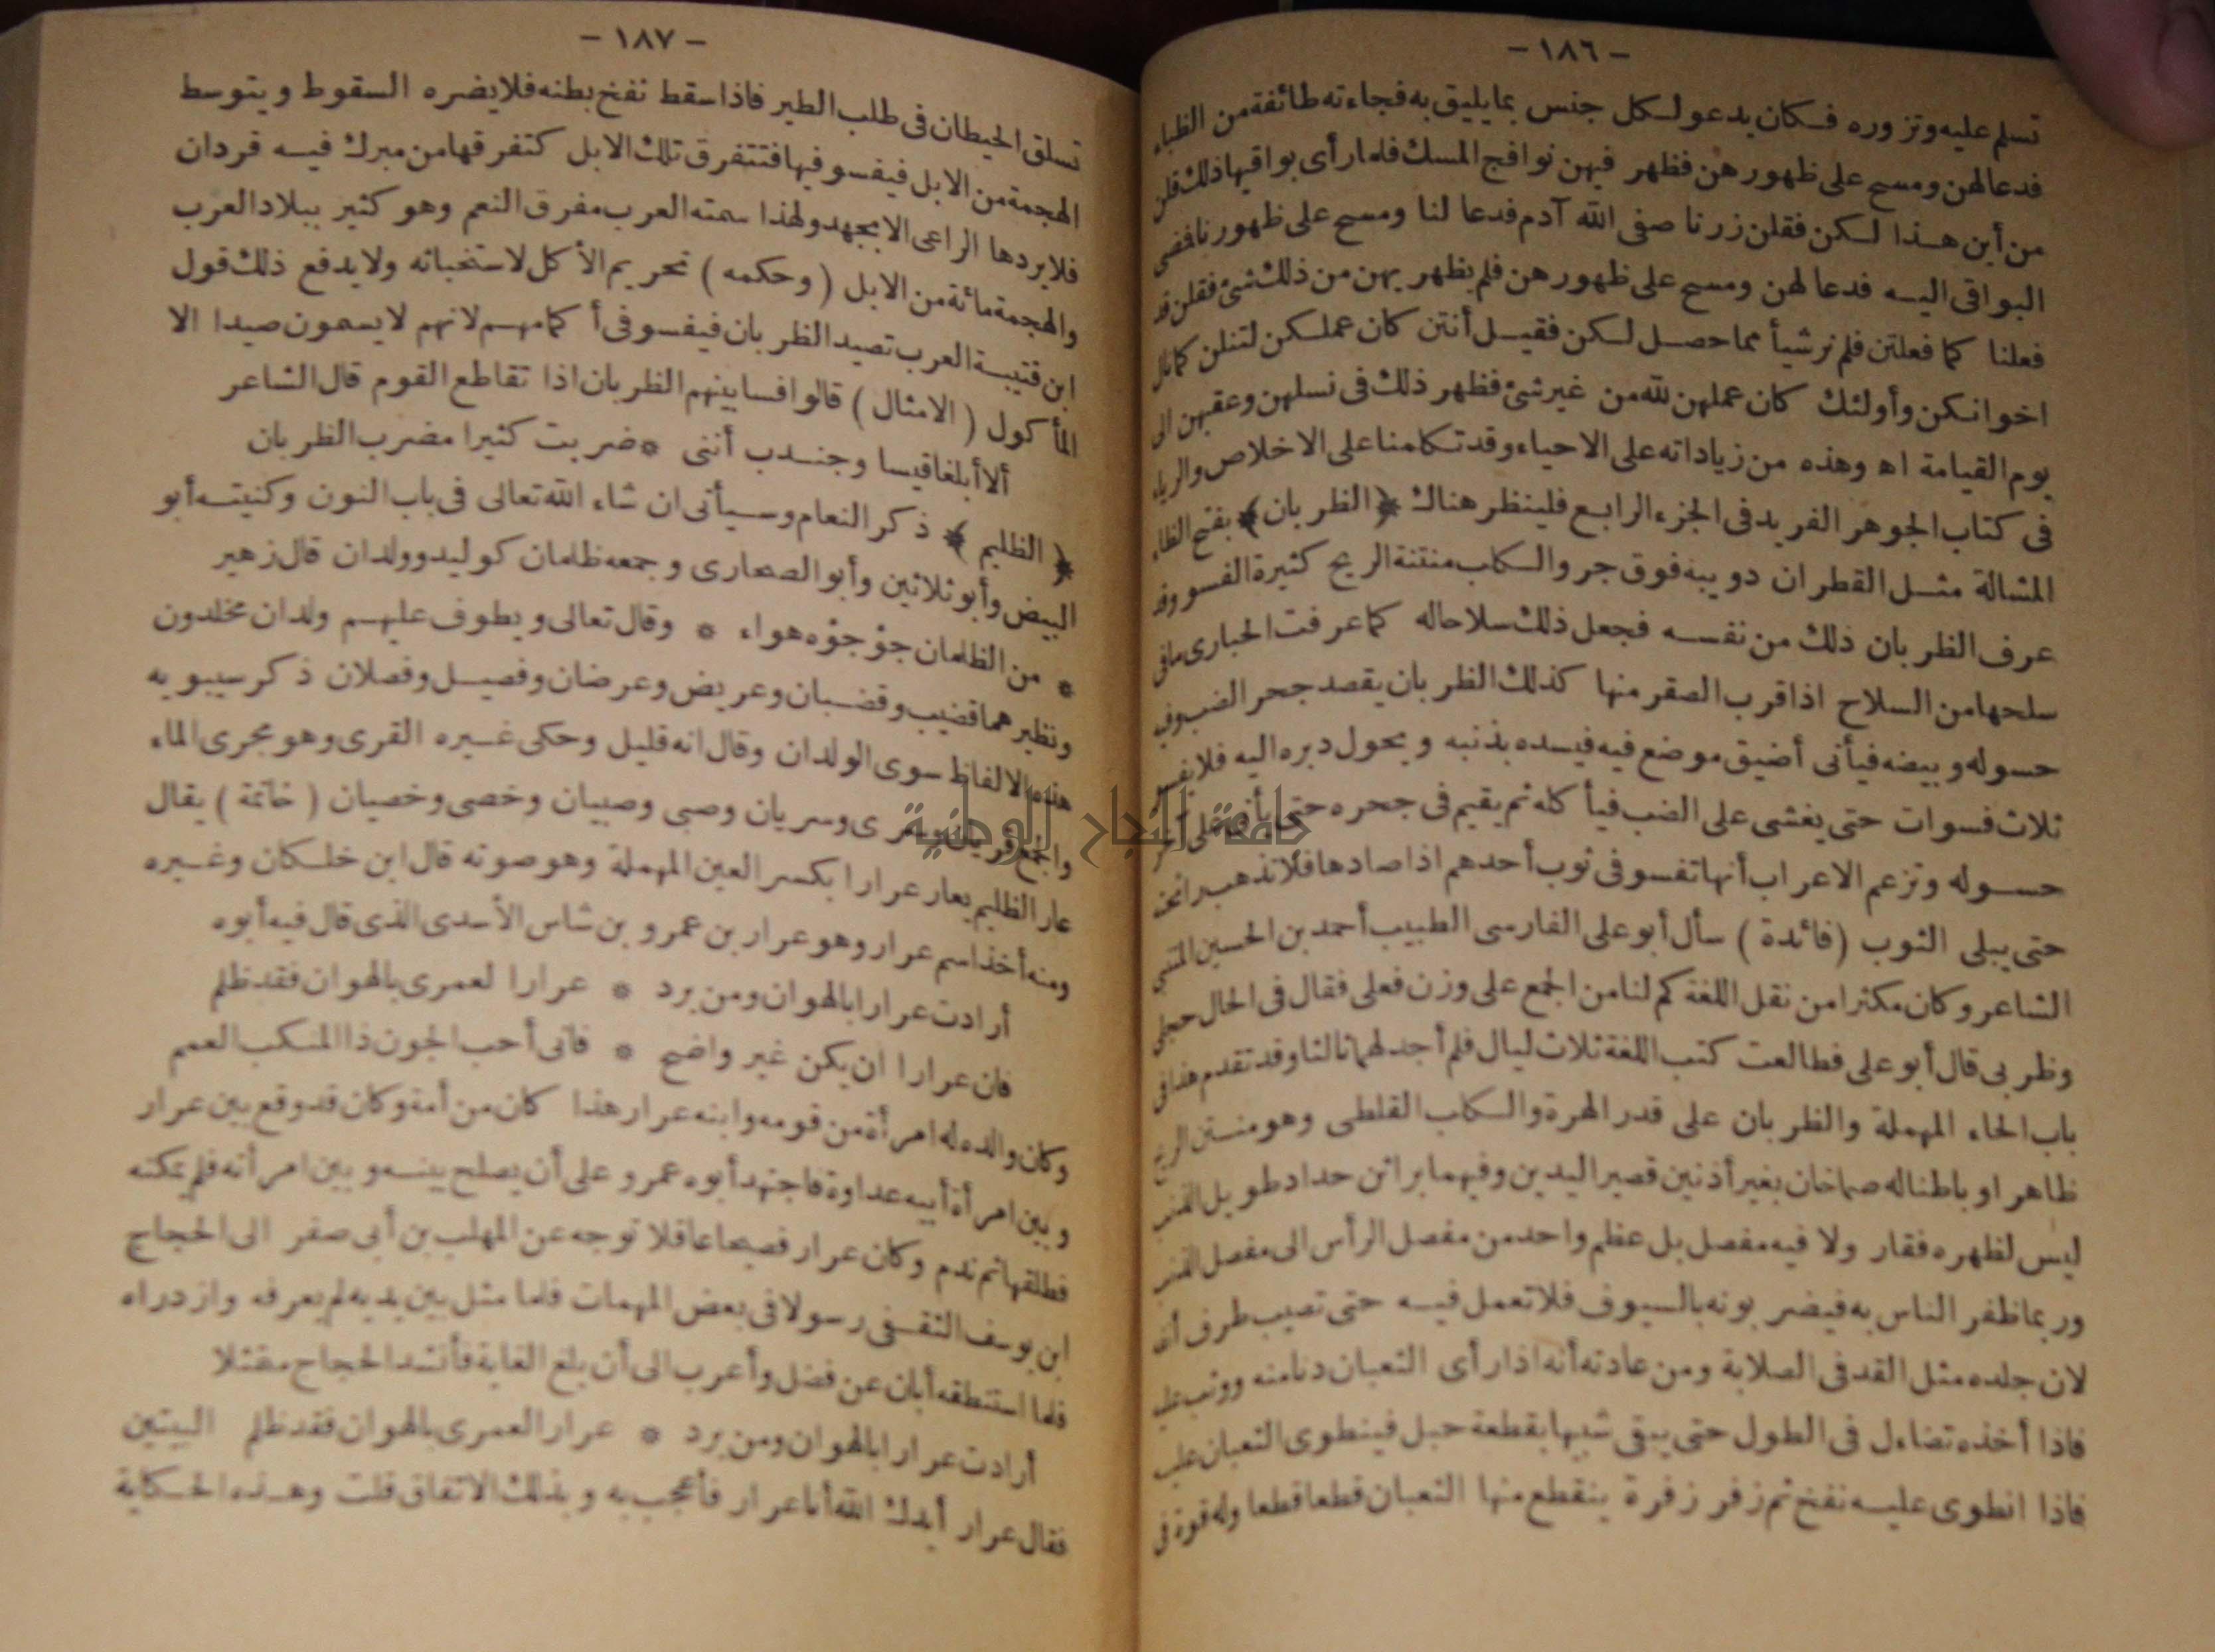 - ١٨٦ -
تسلم عليه وتزوره فكان يدعو لكل جنس بما يليق به فجاءته طائفة من الظباء
فدعا لهن ومسح على ظهورهن فظهر فيهن نوافج المسك فلما رأى بواقيها ذلك قلن
من أين هذا لكن فقلن زرنا صفى الله آدم فدعا لنا ومسح على ظهورنا فمضى
البواقى اليه فدعا لهن ومسح على ظهورهن فلم يظهر بهن من ذلك شئ فقلن قد
فعلنا كما فعلتن فلم نر شيأ مما حصل لكن فقيل أنتن كان عملكن لتنلن كما نال
اخوانكن وأولئك كان عملهن لله من غير شئ فظهر ذلك فى نسلهن وعقبهن الى
يوم القيامة اه وهذه من زياداته على الاحياء وقد تكلمنا على الاخلاص والرياء
فى كتاب الجوهر الفريد فى الجزء الرابع فلينظر هناك ﴿ الظربان ﴾ بفتح الظاء
المشالة مثل القطران دويبة فوق جرو الكلب منتنة الريح كثيرة الفسو وقد
عرف الظربان ذلك من نفسه فجعل ذلك سلاحا له كما عرفت الحبارى ما فى
سلحها من السلاح اذا قرب الصقر منها كذلك الظربان يقصد جحر الضب وفيه
حسوله وبيضه فيأتى أضيق موضع فيه فيسده بذنبه ويحول دبره اليه فلا يفسو
ثلاث فسوات حتى يغشى على الضب فيأكله ثم يقيم فى جحره حتى يأتى على آخر
حسوله وتزعم الاعراب أنها تفسو فى ثوب أحدهم اذا صادها فلا تذهب رائحته
حتى يبلى الثوب (فائدة) سأل أبو على الفارسى الطبيب أحمد بن الحسين المتنبى
الشاعر وكان مكثرا من نقل اللغة كم لنا من الجمع على وزن فعلى فقال فى الحال حجلى
وظربى قال أبو على فطالعت كتب اللغة ثلاث ليال فلم أجد لهما ثالثا وقد تقدم هذا فى
باب الحاء المهملة والظربان على قدر الهرة والكلب القلطى وهو منتن الريح
ظاهرا وباطنا له صماخان بغير أذنين قصير اليدين وفيهما براثن حداد طويل الذنب
ليس لظهره فقار ولا فيه مفصل بل عظم واحد من مفصل الرأس الى مفصل الذنب
وربما ظفر الناس به فيضربونه بالسيوف فلا تعمل فيه حتى تصيب طرف أنفه
لان جلده مثل القد فى الصلابة ومن عادته أنه اذا رأى الثعبان دنا منه ووثب عليه
فاذا أخذه تضاءل فى الطول حتى يبقى شبيها بقطعة حبل فينطوى الثعبان عليه
فاذا انطوى عليه نفخ ثم زفر زفرة ينقطع منها الثعبان قطعا قطعا وله قوة فى
- ١٨٧ -
تسلق الحيطان فى طلب الطير فاذا سقط نفخ بطنه فلا يضره السقوط ويتوسط
الهجمة من الابل فيفسو فيها فتتفرق تلك الابل كتفرقها من مبرك فيه قردان
فلا يردها الراعى الا بجهد ولهذا سمته العرب مفرق النعم وهو كثير ببلاد العرب
والهجمة مائة من الابل ( وحكمه ) تحريم الأكل لاستخبائه ولا يدفع ذلك قول
ابن قتيبة العرب تصيد الظربان فيفسو فى أكمامهم لانهم لا يسمون صيدا الا
المأكول ( الامثال ) قالوا فسا بينهم الظربان اذا تقاطع القوم قال الشاعر
ألا أبلغا قيسا وجندب أننى * ضربت كثيرا مضرب الظربان
﴿ الظليم ﴾ ذكر النعام وسيأتى ان شاء الله تعالى فى باب النون وكنيته أبو
البيض وأبو ثلاثين وأبو الصحارى وجمعه ظلمان كوليد وولدان قال زهير
* من الظلمان جؤجؤه هواء * وقال تعالى ويطوف عليهم ولدان مخلدون
ونظيرهما قضيب وقضبان وعريض وعرضان وفصيل وفصلان ذكر سيبويه
هذه الالفاظ سوى الولدان وقال انه قليل وحكى غيره القرى وهو مجرى الماء
والجمع قريان وسرى وسريان وصبى وصبيان وخصى وخصيان ( خاتمة ) يقال
عار الظليم يعار عرارا بكسر العين المهملة وهو صوته قال ابن خلكان وغيره
ومنه أخذ اسم عرار وهو عرار بن عمرو بن شاس الأسدى الذى قال فيه أبوه
أرادت عرارا بالهوان ومن يرد * عرارا لعمرى بالهوان فقد ظلم
فان عرارا ان يكن غير واضح * فانى أحب الجون ذا المنكب العمم
وكان والده له امرأة من قومه وابنه عرار هذا كان من أمة وكان قد وقع بين عرار
وبين امرأة أبيه عداوة فاجتهد أبوه عمرو على أن يصلح بينه وبين امرأته فلم يمكنه
فطلقها ثم ندم وكان عرار فصيحا عاقلا توجه عن المهلب بن أبى صفر الى الحجاج
ابن يوسف الثقفى رسولا فى بعض المهمات فلما مثل بين يديه لم يعرفه وازدراه
فلما استنطقه أبان عن فضل وأعرب الى أن بلغ الغاية فأنشد الحجاج مقثلا
أرادت عرارا بالهوان ومن يرد * عرار العمرى بالهوان فقد ظلم البيتين
فقال عرار أيدك الله أنا عرار فأعجب به وبذلك الاتفاق قلت وهذه الحكاية
جامعة النجاح الوطنية